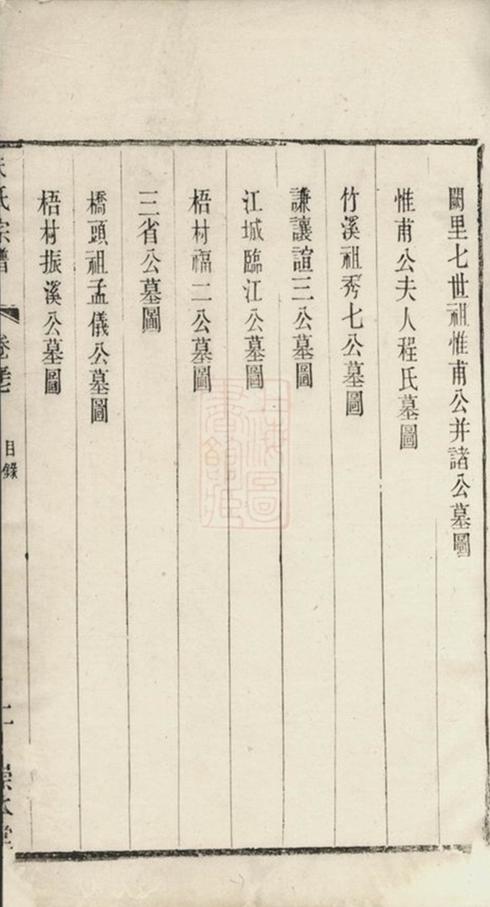 闕里七世祖惟甫公并諸公墓圖
惟甫公夫人程氏墓圖
竹溪祖秀七公墓圖
謙讓誼三公墓圖
江城臨江公墓圖
梧村福二公墓圖
三省公墓圖
橋頭祖孟儀公墓圖
梧村振溪公墓圖
氏宗譜
目錄
上海圖書館藏